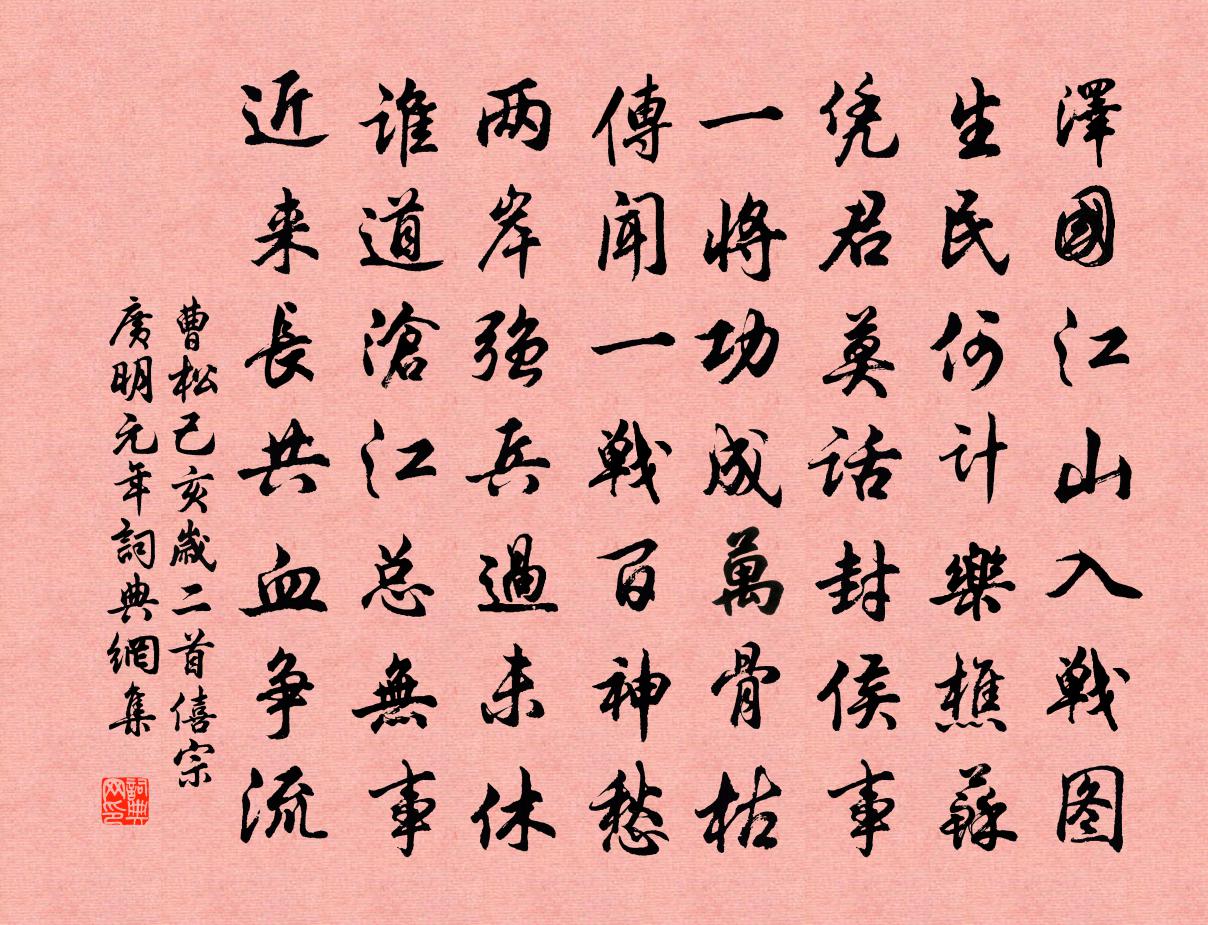 澤國江山入戰图
生民何计樂樵蘇
凭君莫话封侯事
一将功成萬骨枯
傳聞一戰百神愁
两岸强兵過未休
谁道滄江总無事
近来長共血争流
曹松己亥歲二首僖宗
廣明元年詞典網集
詞典网印